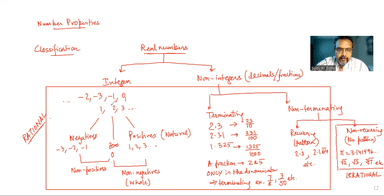 Number Properties
Classification
Real numbers
Integers
Non-integers (decimals/fractions)
... -2, -3, -1, 0,
1, 2, 3 ...
Terminating
Non-terminating
2.3 → 23/10
2.31 → 231/100
1.325 → 1325/1000
Negatives
-3, -2, -1
zero
0
Positives (Natural)
1, 2, 3, ...
Non-positives
Non-negatives
(whole)
A fraction → 2 & 5
ONLY in the denominator
→ terminating ex. 7/8,
etc
Recurring
(pattern)
2.3,
etc.
Non-recurring
(No pattern)
π = 3.141596
√2, √3, ∛7 etc
RATIONAL
IRRATIONAL